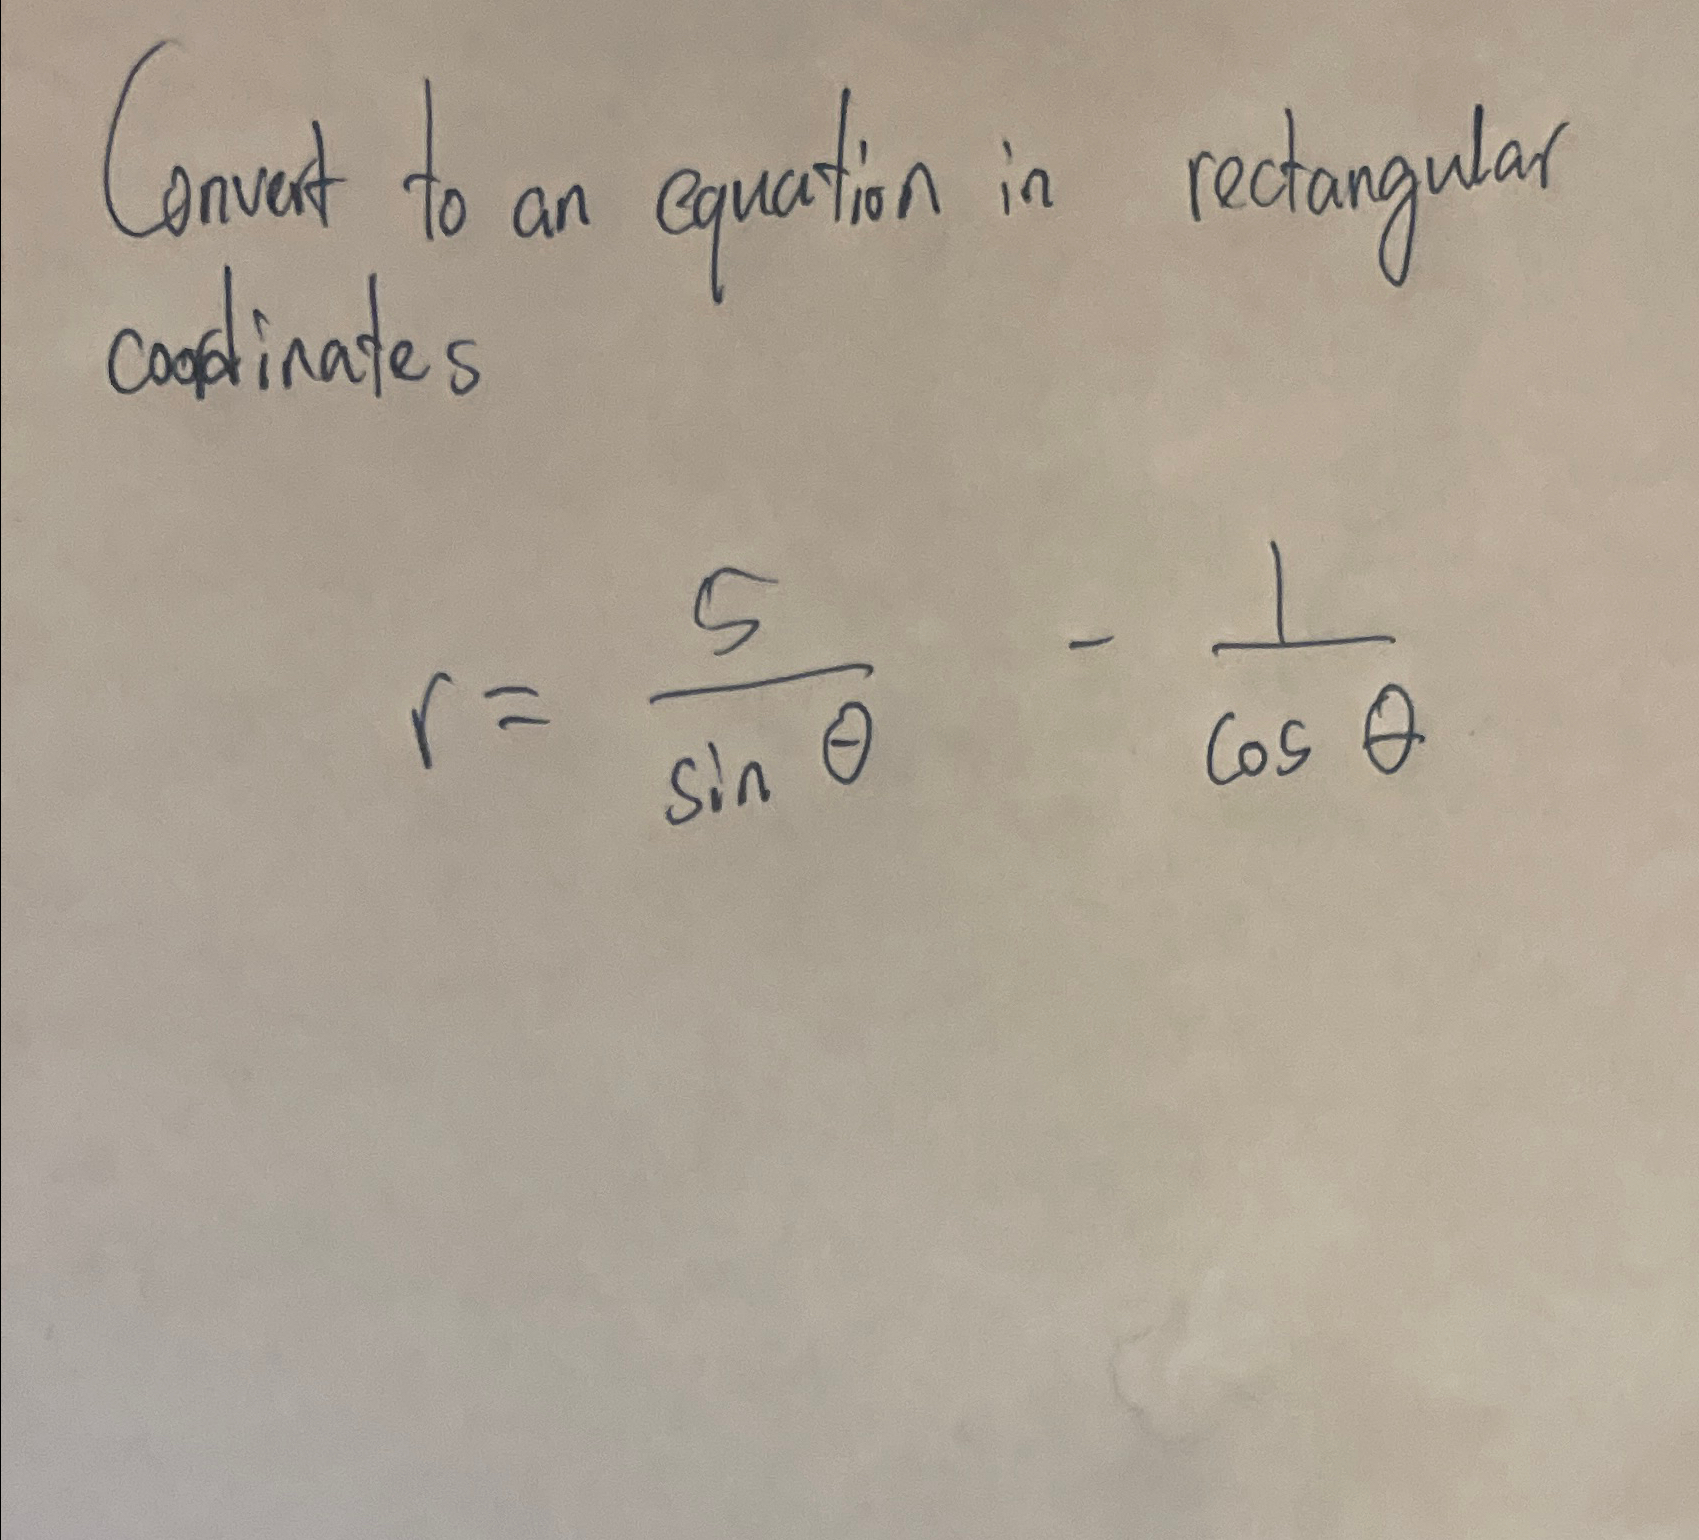 Convert to an equation in rectangular
coordinates
r = 5/sin θ - 1/cos θ